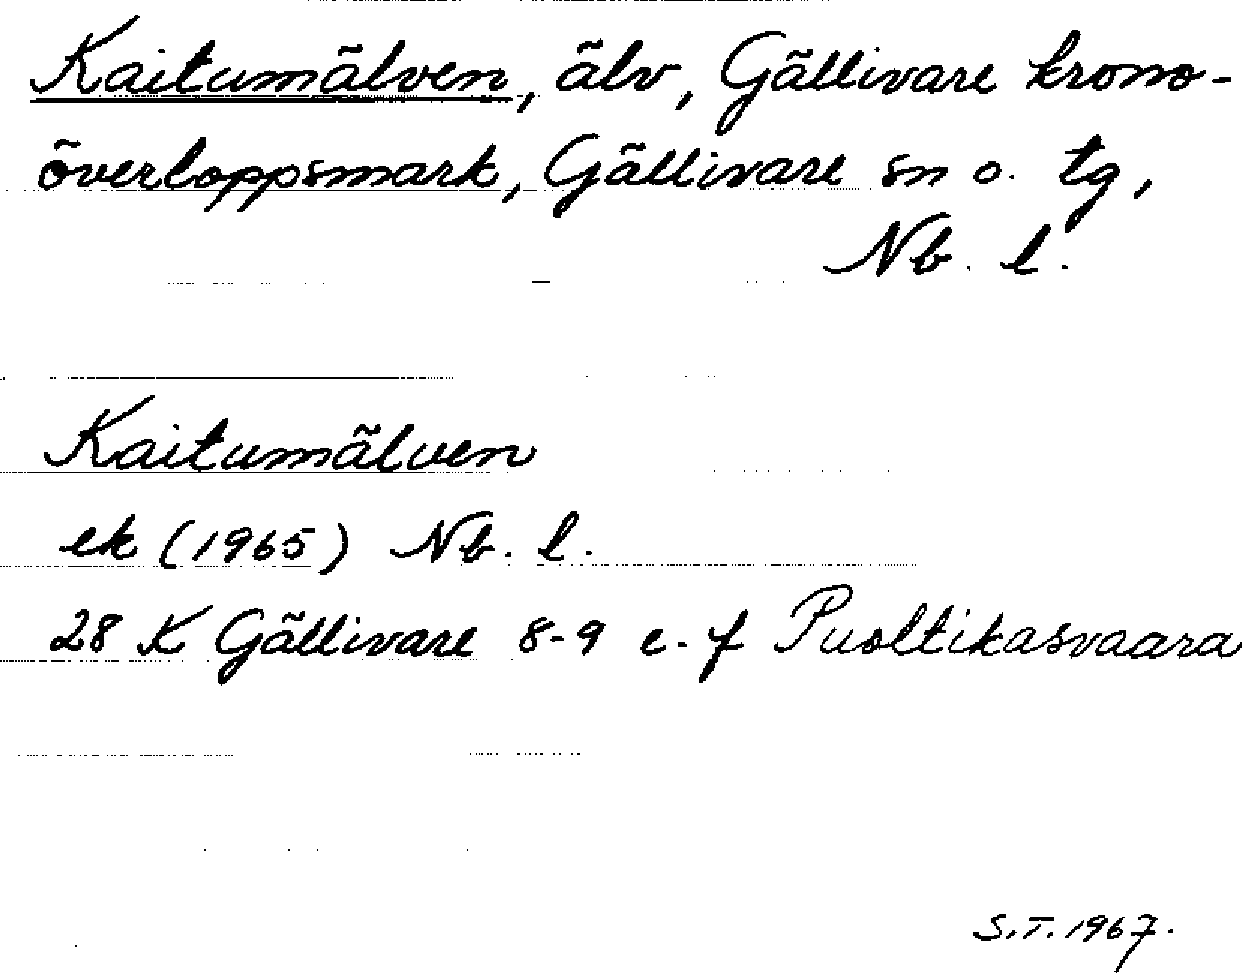 Kaitumälven, älv, Gällivare krono-
överloppsmark, Gällivare sn o. tg,
Nb. l.
Kaitumälven
ek (1965) Nb. l.
28 K Gällivare 8-9 e-f Puoltikasvaara
S.T. 1967.